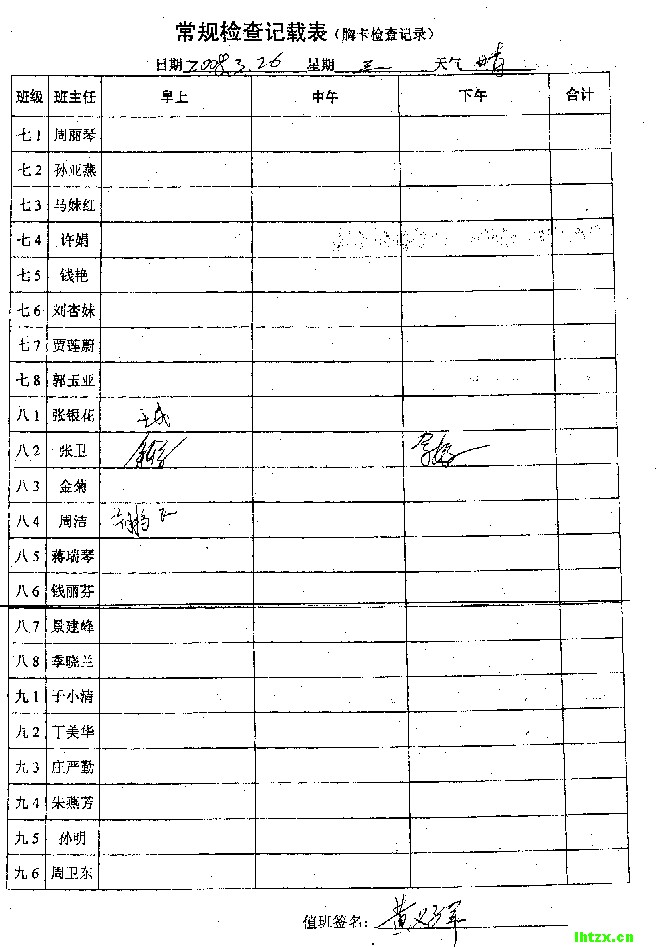 常规检查记载表（胸卡检查记录）
日期 2008.3.26 星期 三 天气 晴
班级 班主任 早上 中午 下午 合计
七1 周丽琴
七2 孙亚燕
七3 马妹红
七4 许娟
七5 钱艳
七6 刘杏妹
七7 贾莲蔚
七8 郭玉亚
八1 张银花
八2 张卫
八3 金菊
八4 周洁
八5 蒋瑞琴
八6 钱丽芬
八7 景建峰
八8 季晓兰
九1 于小清
九2 丁美华
九3 庄严勤
九4 朱燕芳
九5 孙明
九6 周卫东
值班签名：黄
lhtzx.cn